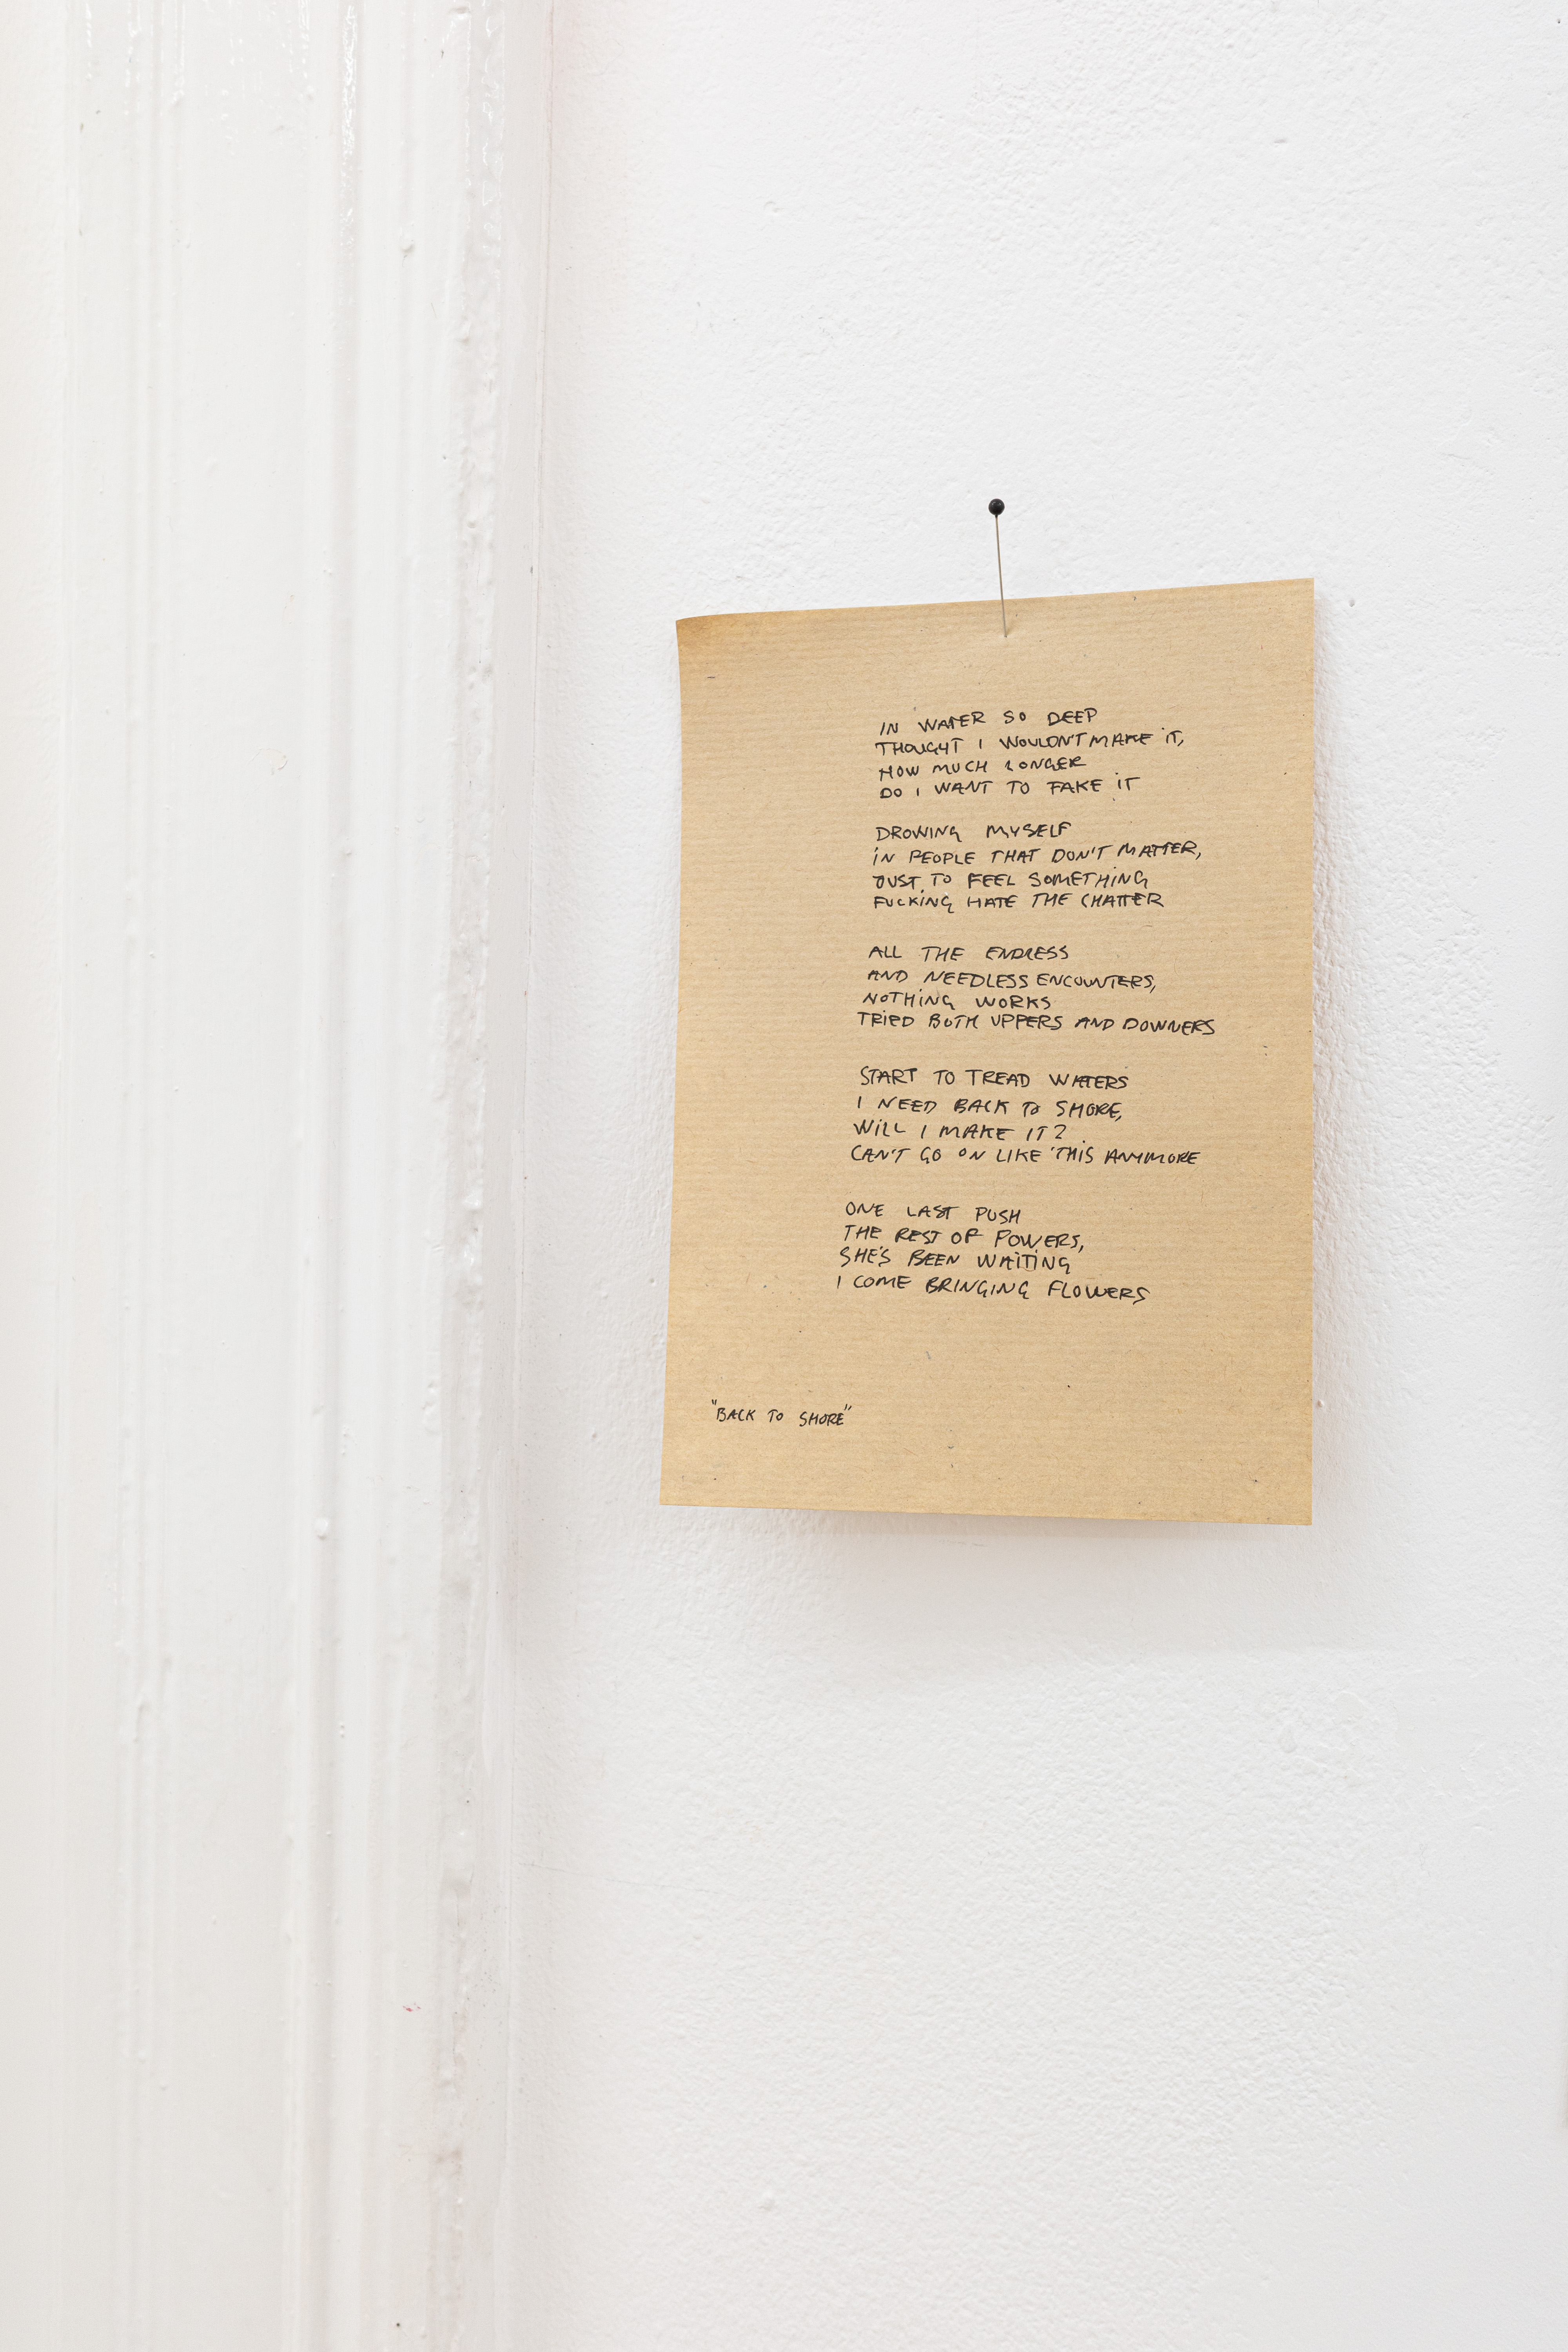 IN WATER SO DEEP
THOUGHT I WOULDN'T MAKE IT,
HOW MUCH LONGER
DO I WANT TO FAKE IT
DROWING MYSELF
IN PEOPLE THAT DON'T MATTER,
JUST TO FEEL SOMETHING
FUCKING HATE THE CHATTER
ALL THE ENDLESS
AND NEEDLESS ENCOUNTERS,
NOTHING WORKS
TRIED BOTH UPPERS AND DOWNERS
START TO TREAD WATERS
I NEED BACK TO SHORE,
WILL I MAKE IT?
CAN'T GO ON LIKE THIS ANYMORE
ONE LAST PUSH
THE REST OF POWERS,
SHE'S BEEN WAITING
I COME BRINGING FLOWERS
"BACK TO SHORE"